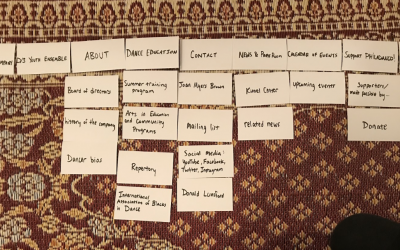 D/3 Youth Ensemble
ABOUT
DANCE EDUCATION
CONTACT
NEWS & Press Room
CALENDAR OF EVENTS
SUPPORT PHILADANCO!
Board of directors
Summer training
program
Joan Myers Brown
Kimmel Center
Upcoming events
Supporters/
made possible by...
history of the company
Arts in Education
and Community
Programs
Mailing list
related news
Donate
Dancer bios
Repertory
Social media
YouTube, Facebook,
Twitter, Instagram
International
Association of Blacks
in Dance
Donald Lunsford